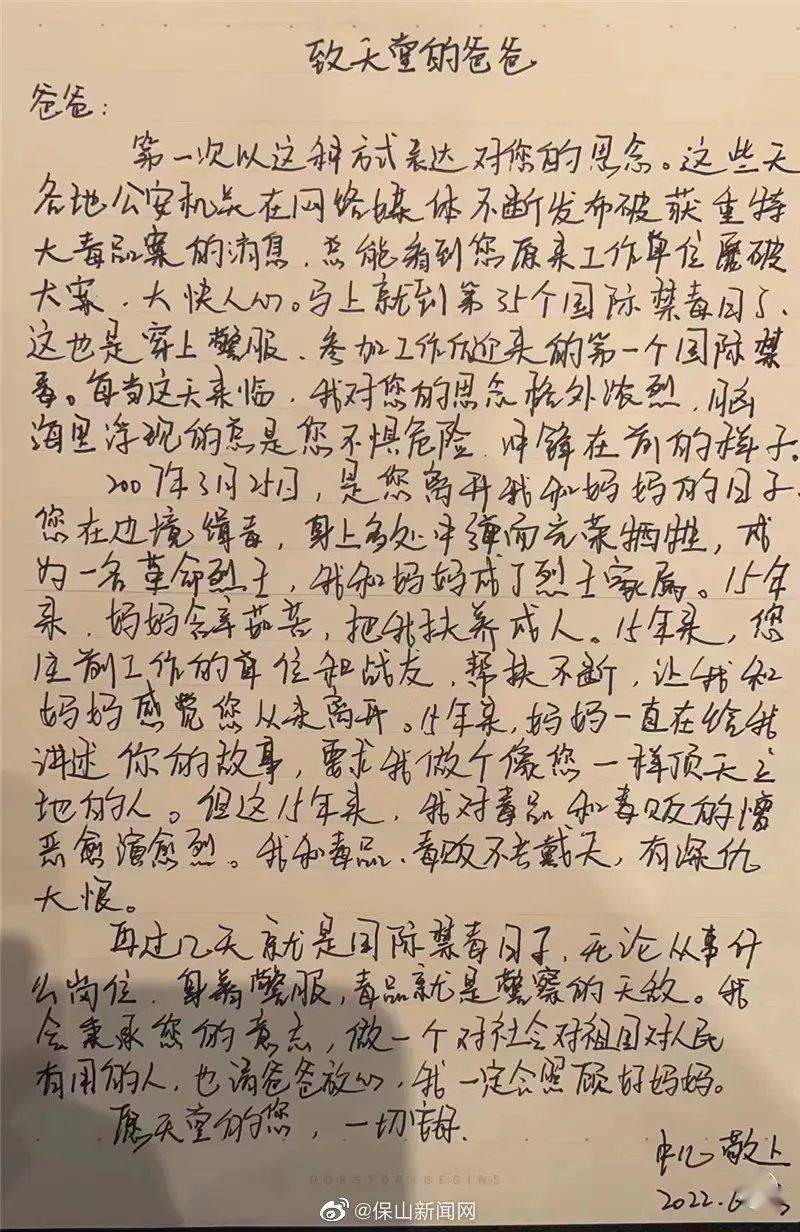 致天堂的爸爸
爸爸：
第一次以这种方式表达对您的思念。这些天
各地公安机关在网络媒体不断发布破获重特
大毒品案的消息，总能看到您原来工作单位屡破
大案，大快人心。马上就到第35个国际禁毒日了，
这也是穿上警服、参加工作后迎来的第一个国际禁
毒。每当这天来临，我对您的思念格外浓烈，脑
海里浮现的总是您不惧危险、冲锋在前的样子。
2007年3月25日，是您离开我和妈妈的日子，
您在边境缉毒，身上多处中弹而光荣牺牲，成
为一名革命烈士，我和妈妈成了烈士家属。15年
来，妈妈含辛茹苦，把我扶养成人。15年来，您
生前工作的单位和战友，帮扶不断，让我和
妈妈感觉您从未离开。15年来，妈妈一直在给我
讲述你的故事，要求我做个像您一样顶天立
地的人。但这15年来，我对毒品和毒贩的憎
恶愈演愈烈。我和毒品、毒贩不共戴天，有深仇
大恨。
再过几天就是国际禁毒日子，无论从事什
么岗位，身着警服，毒品就是警察的天敌。我
会秉承您的意志，做一个对社会对祖国对人民
有用的人，也请爸爸放心，我一定会照顾好妈妈。
愿天堂的您，一切安好。
敬上
2022.6
OURSTORYBEGINS
@保山新闻网